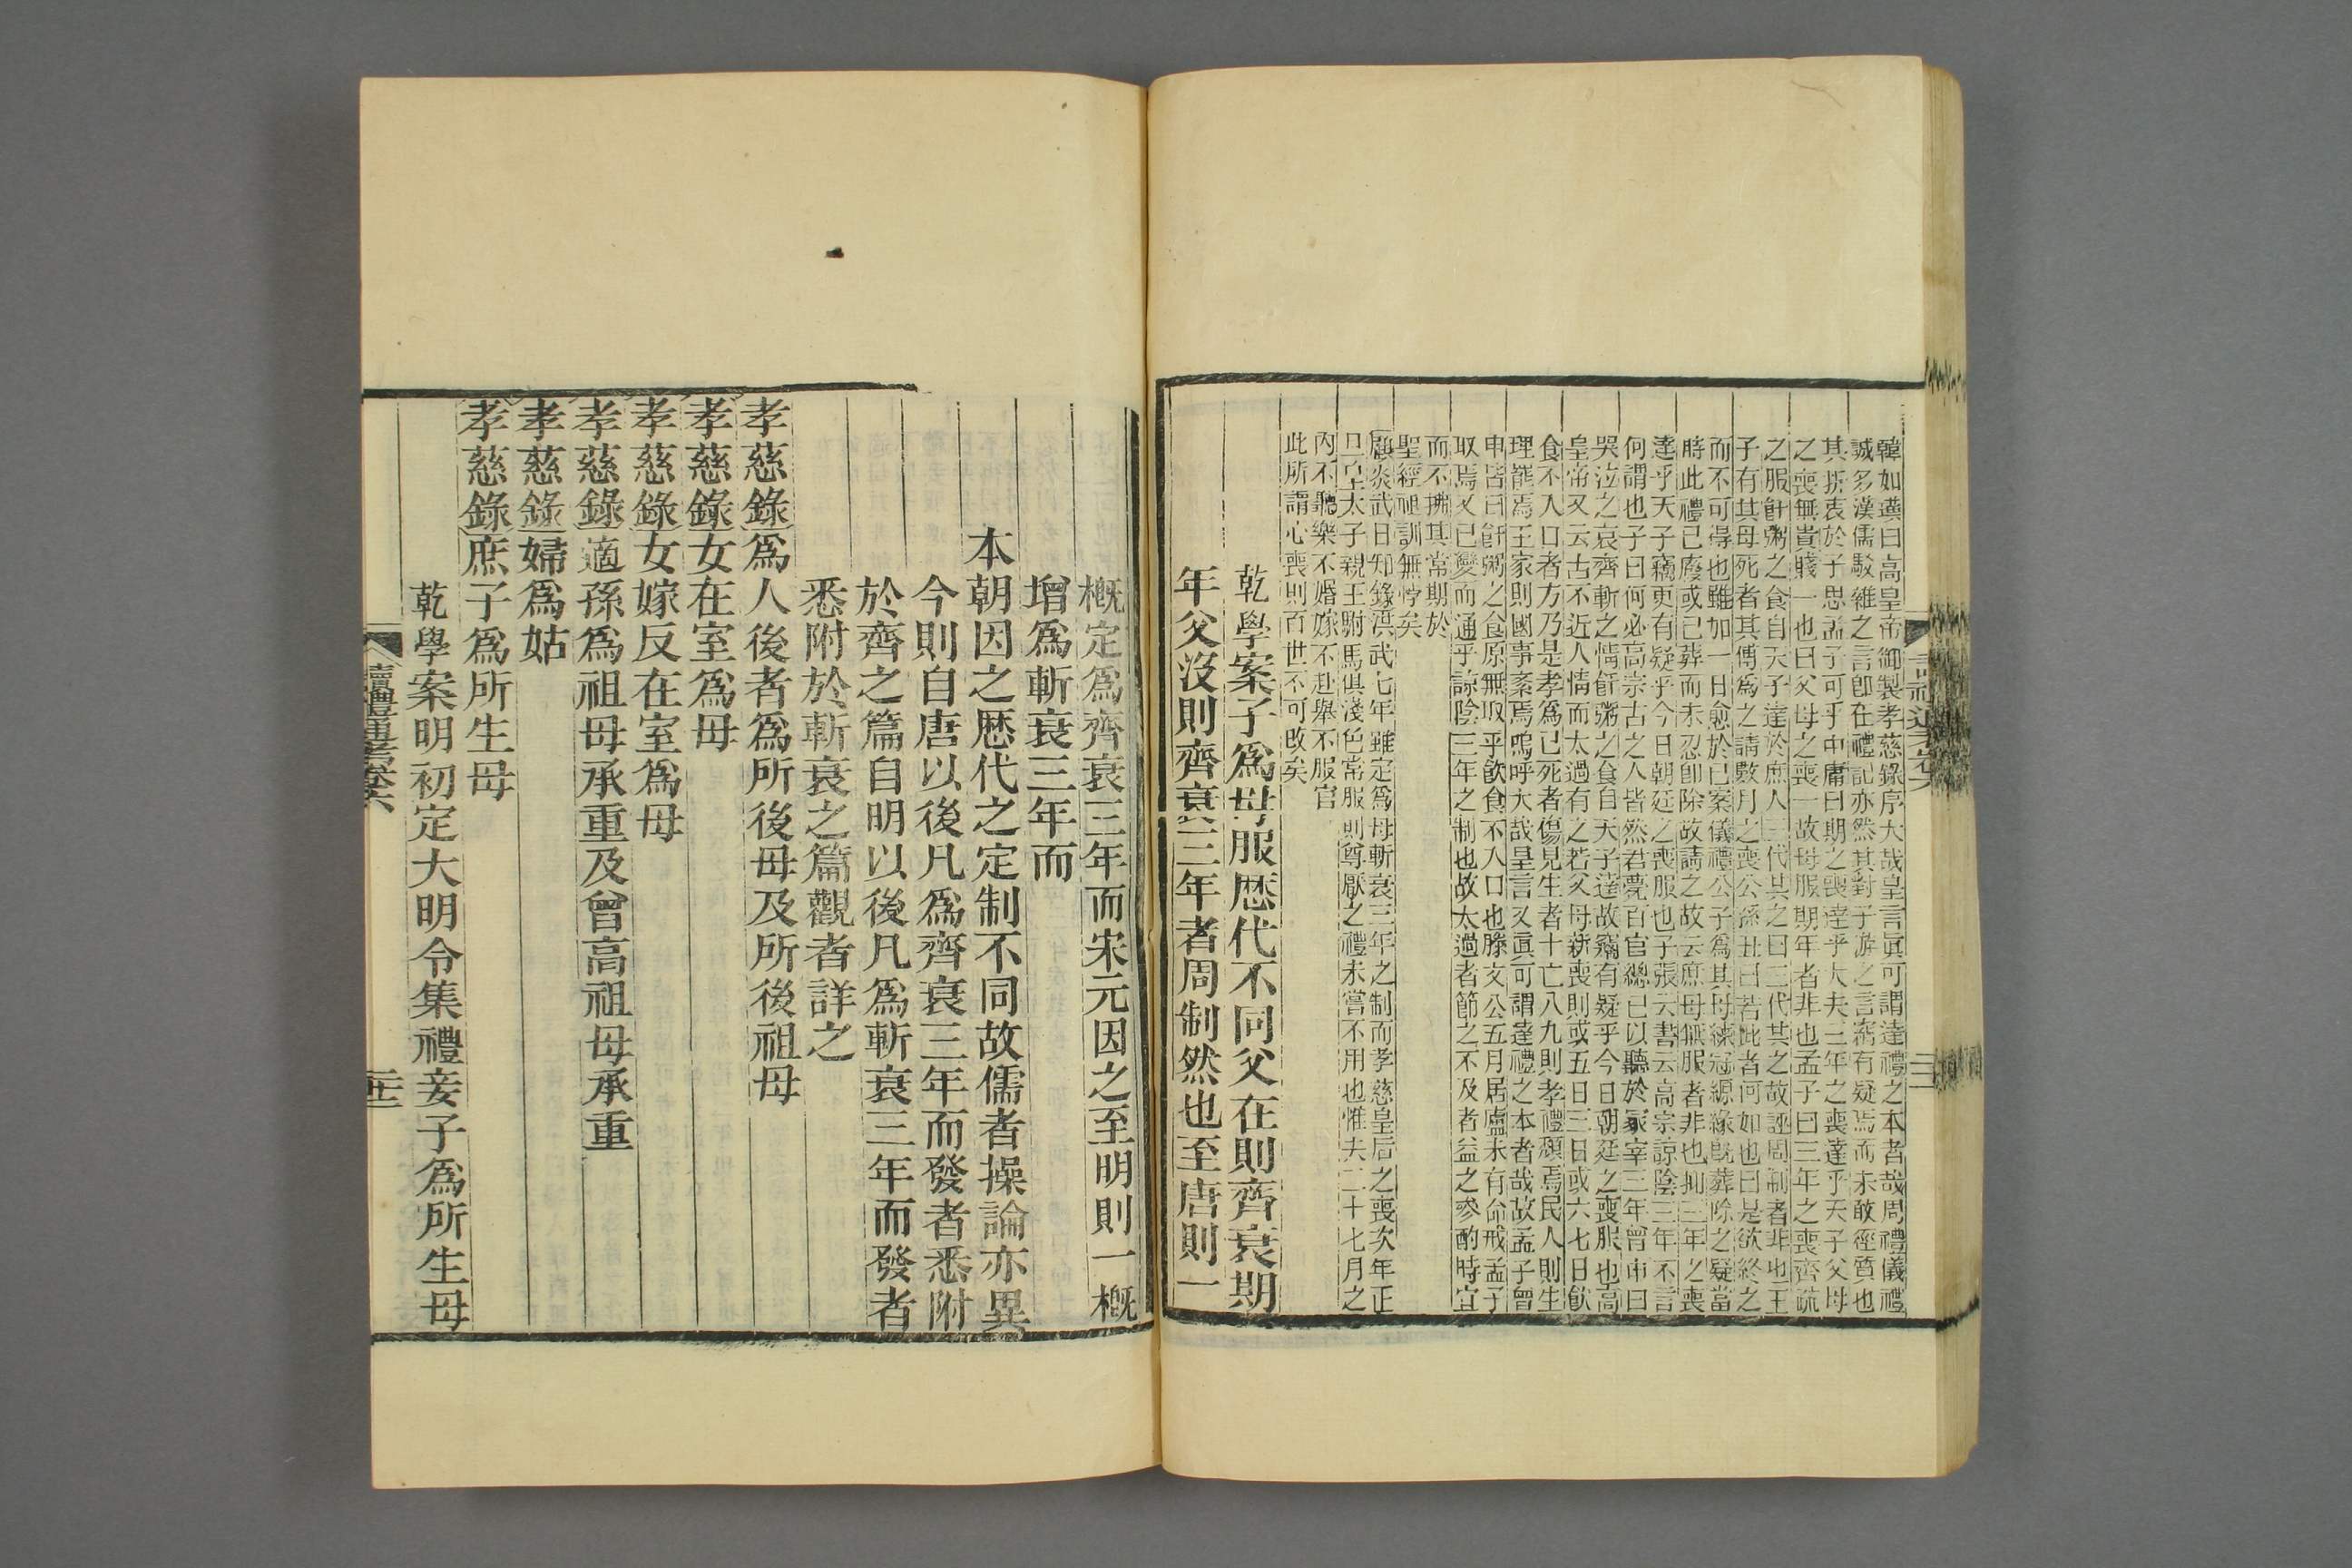 韓如璜曰高皇帝御製孝慈錄序大哉皇言眞可謂達禮之本者哉周禮儀禮
誠多漢儒駁雜之言卽在禮記亦然其對子游之言竊有疑焉而未敢徑質也
其折衷於子思孟子可乎中庸曰期之喪達乎大夫三年之喪達乎天子父母
之喪無貴賤一也曰父母之喪一故母服期年者非也孟子曰三年之喪齊疏
之服飦粥之食自天子達於庶人三代共之曰三代共之故誣周制者非也王
子有其母死者其傅爲之請數月之喪公孫丑曰若此者何如也曰是欲終之
而不可得也雖加一日愈於已案儀禮公子爲其母練冠縓緣旣葬除之疑當
時此禮已廢或已葬而未忍卽除故請之故云庶母無服者非也抑三年之喪
達乎天子竊更有疑乎今日朝廷之喪服也子張云書云高宗諒陰三年不言
何謂也子曰何必高宗古之人皆然君薨百官總已以聽於冢宰三年曾申曰
哭泣之哀齊斬之情飦粥之食自天子達故竊有疑乎今日朝廷之喪服也高
皇帝又云古不近人情而太過有之若父母新喪則或五日三日或六七日飮
食不入口者方乃是孝爲已死者傷見生者十亡八九則孝禮頹焉民人則生
理罷焉王家則國事紊焉嗚呼大哉皇言又眞可謂達禮之本者哉故孟子曾
申皆曰飦粥之食原無取乎飮食不入口也滕文公五月居廬未有命戒孟子
取焉又已變而通乎諒陰三年之制也故太過者節之不及者益之參酌時宜
而不拂其常期於
聖經祖訓無悖矣
顧炎武日知錄洪武七年雖定爲母斬衰三年之制而孝慈皇后之喪次年正
旦皇太子親王駙馬俱淺色常服則尊厭之禮未嘗不用也惟夫二十七月之
內不聽樂不婚嫁不赴舉不服官
此所謂心喪則百世不可改矣
乾學案子爲母服歷代不同父在則齊衰期
年父沒則齊衰三年者周制然也至唐則一
槪定爲齊衰三年而宋元因之至明則一槪
增爲斬衰三年而
本朝因之歷代之定制不同故儒者操論亦異
今則自唐以後凡爲齊衰三年而發者悉附
於齊之篇自明以後凡爲斬衰三年而發者
悉附於斬衰之篇觀者詳之
孝慈錄爲人後者爲所後母及所後祖母
孝慈錄女在室爲母
孝慈錄女嫁反在室爲母
孝慈錄適孫爲祖母承重及曾高祖母承重
孝慈錄婦爲姑
孝慈錄庶子爲所生母
乾學案明初定大明令集禮妾子爲所生母
讀禮通考卷六